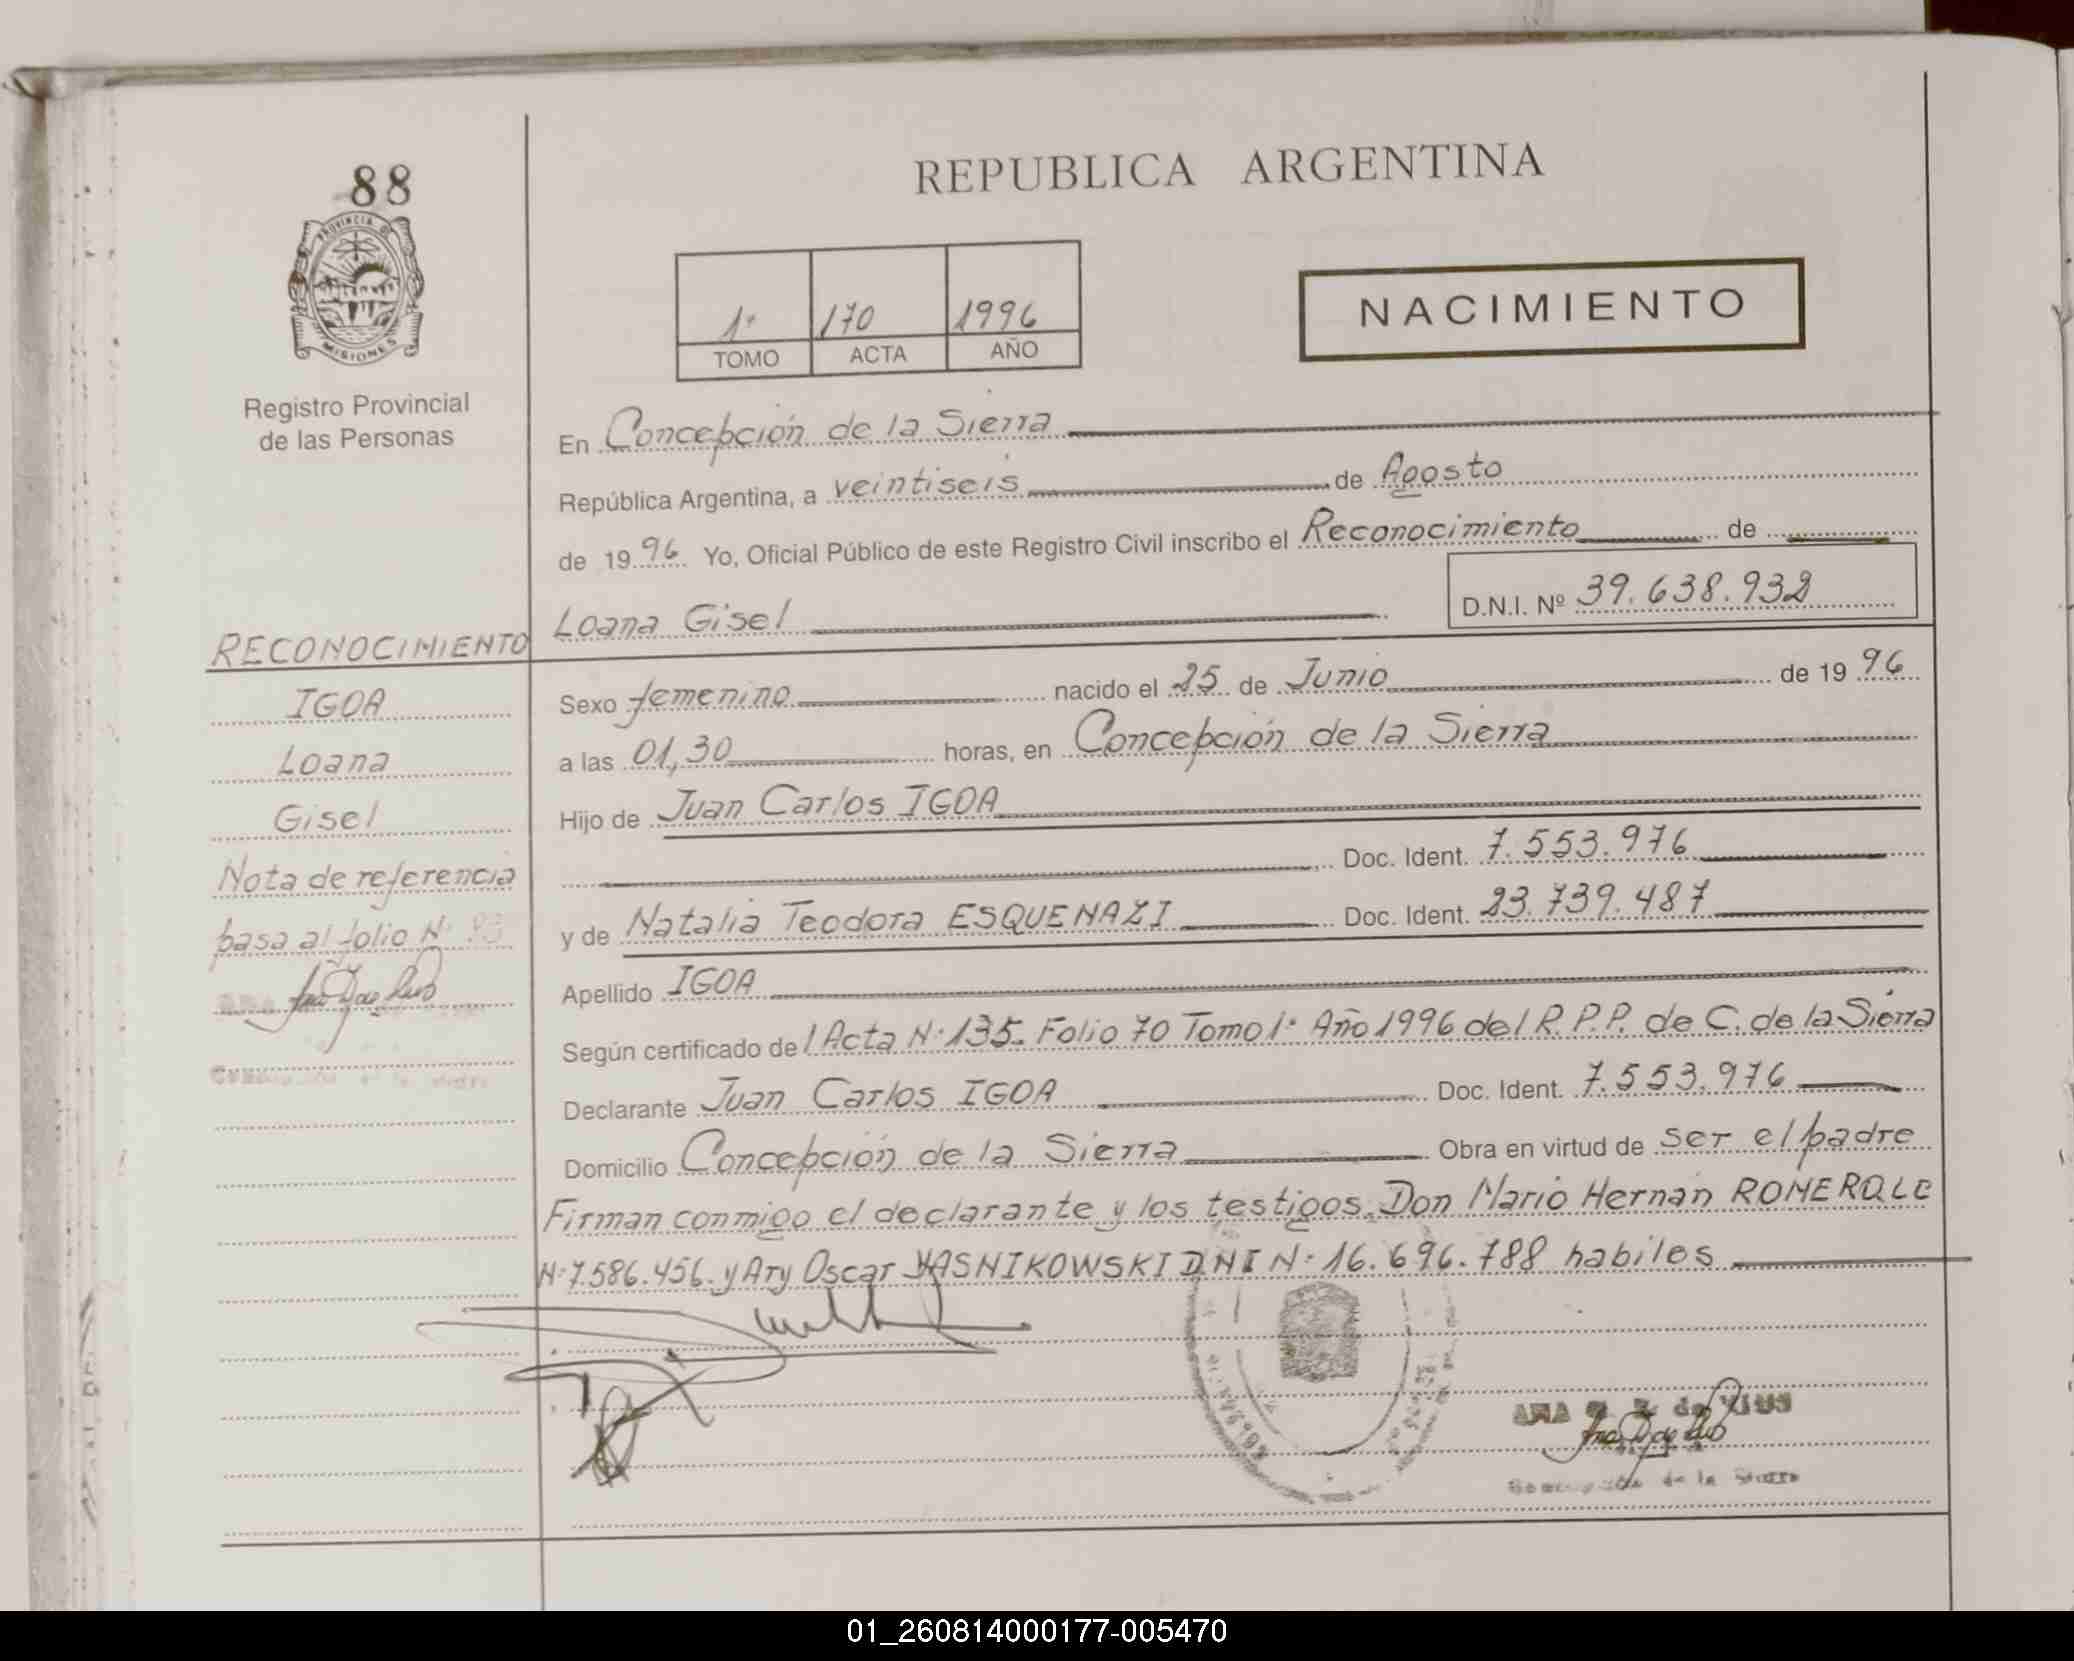 88
PROVINCIA D
MISIONES
Registro Provincial
de las Personas
REPUBLICA ARGENTINA
1º 170 1996
TOMO ACTA AÑO
NACIMIENTO
En Concepción de la Sierra
República Argentina, a veintiseis de Agosto
de 1996 Yo, Oficial Público de este Registro Civil inscribo el Reconocimiento de
Loana Gisel D.N.I. Nº 39.638.932
RECONOCIMIENTO
IGOA
Loana
Gisel
Nota de referencia
pasa al folio Nº 93
Sexo femenino nacido el 25 de Junio de 1996
a las 01,30 horas, en Concepción de la Sierra
Hijo de Juan Carlos IGOA
Doc. Ident. 7.553.976
y de Natalia Teodora ESQUENAZI Doc. Ident. 23.739.487
Apellido IGOA
Según certificado del Acta Nº 135. Folio 70 Tomo 1º Año 1996 del R.P.P. de C. de la Sierra
Declarante Juan Carlos IGOA Doc. Ident. 7.553.976
Domicilio Concepción de la Sierra Obra en virtud de ser el padre
Firman conmigo el declarante y los testigos. Don Mario Hernán ROMERO. LE
Nº 7.586.456. y Ary Oscar YASNIKOWSKI DNI Nº 16.696.788 habiles
ANA de
de la Sierra
01_260814000177-005470